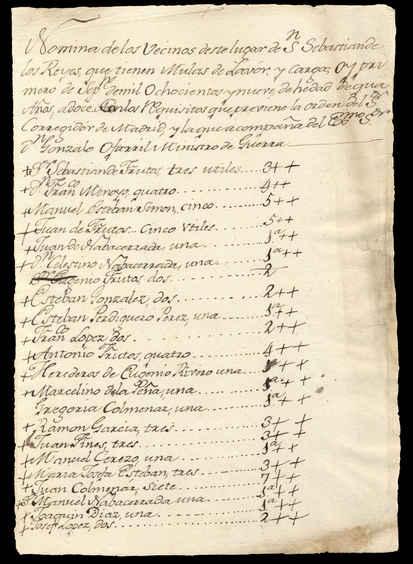 Nomina de los Vecinos deste lugar de Sn Sebastian de
los Reyes, que tienen Mulas de Lavor, y Carga, oy pri
mero de Sepre de mil Ochocientos y nueve, de hedad de quatro
Años, a doce con los Requisitos que previene la orden del Sr
Corregidor de Madrid, y la que acompaña del Exmo Sr
Dn Gonzalo Ofarril Ministro de Guerra
+ Dn Sebastian de Frutos tres utiles.... 3++
+ Dn Franco Moroyo, quatro........ 4++
+ Manuel Esteban Simon, cinco..... 5++
+ Juan de Frutos.. Cinco Utiles..... 5++
+ Juan de Nabacerrada, una........ 1a++
+ Dn Celestino Nabacerrada, una...... 1a++
Eugenio Frutos dos............ 2
+ Esteban Gonzalez, dos......... 2++
+ Esteban Perdiguero Perez, una...... 1a++
+ Franco Lopez, dos............. 2++
+ Antonio Frutos, quatro.......... 4+++
+ Herederos de Eugenio Rivero una.... 1++
+ Marcelino de la Peña, una........ 1a++
Gregoria Colmenar, una......... 1a++
+ Ramon Garcia, tres........... 3++
+ Juan Pines, tres............. 3++
+ Manuel Cerezo, una........... 1a++
+ Maria Josefa Esteban, tres....... 3++
+ Juan Colmenar, Siete.......... 7++
+ Manuel Nabacerrada una....... 1a++
+ Joaquin Diaz, una............ 1a++
+ Josef Lopez, dos............. 2++